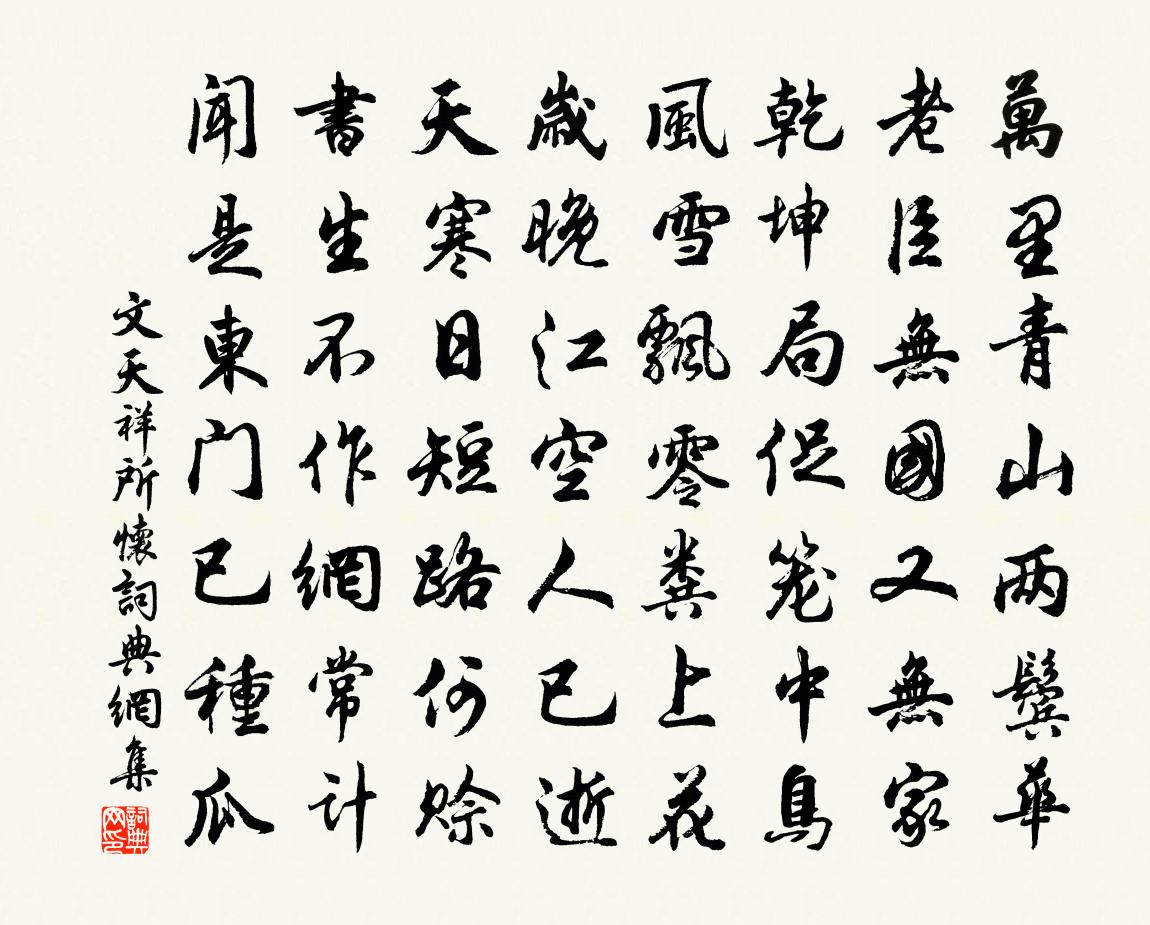 萬里青山兩鬢華
老臣無國又無家
乾坤局促籠中鳥
風雪飄零糞上花
歲晚江空人已逝
天寒日短路何賒
書生不作網常計
聞是東門已種瓜
文天祥所懷詞典網集
詞典网印